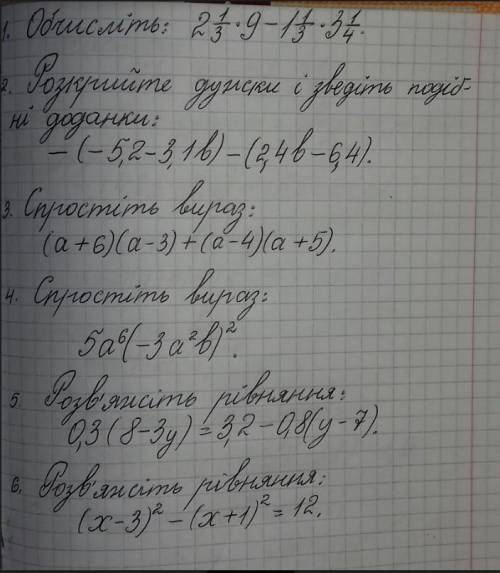 1. Обчисліть: 2 1/3 · 9 − 1 1/3 · 3 1/4.
2. Розкрийте дужки і зведіть подіб-
ні доданки:
− (− 5,2 − 3,1в) − (2,4в − 6,4).
3. Спростіть вираз:
(а + 6)(а − 3) + (а − 4)(а + 5).
4. Спростіть вираз:
5а⁶(−3а²в)².
5. Розв'яжіть рівняння:
0,3(8 − 3у) = 3,2 − 0,8(у − 7).
6. Розв'яжіть рівняння:
(х − 3)² − (х + 1)² = 12.